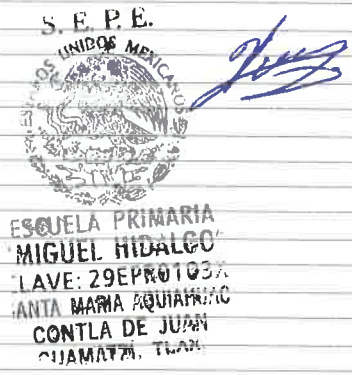 S. E. P. E.
UNIDOS MEXICANOS
ESCUELA PRIMARIA
"MIGUEL HIDALGO"
CLAVE: 29EPR0103X
SANTA MARIA AQUIAHUAC
CONTLA DE JUAN
CUAMATZI, TLAX.